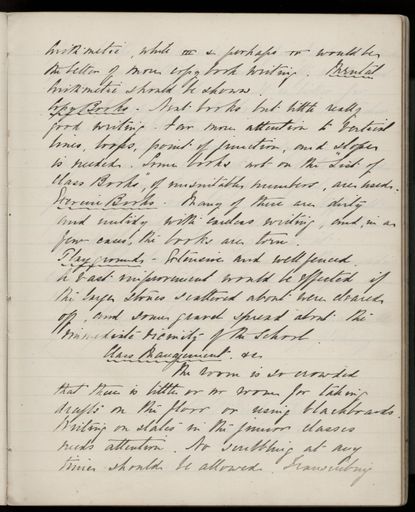 Arithmetic, while III & perhaps IV would be
the better of more copy book writing. Mental
Arithmetic should be shown.
Copy Books - Neat books but little really
good writing. Far more attention to vertical
lines, loops, point of junction, and slopes
is needed. Some books not on the "List of
Class Books", of unsuitable numbers, are used.
Exercise Books. Many of these are dirty
and untidy with careless writing, and, in a
few cases, the books are torn.
Playgrounds - Extensive and well fenced.
A vast improvement would be effected if
the larger stones scattered about were cleared
off, and some gravel spread about the
immediate vicinity of the School.
Class Management. &c.
The room is so crowded
that there is little or no room for taking
drafts on the floor or using blackboards.
Writing on slates in the junior classes
needs attention. No scribbling at any
time should be allowed. Transcribing